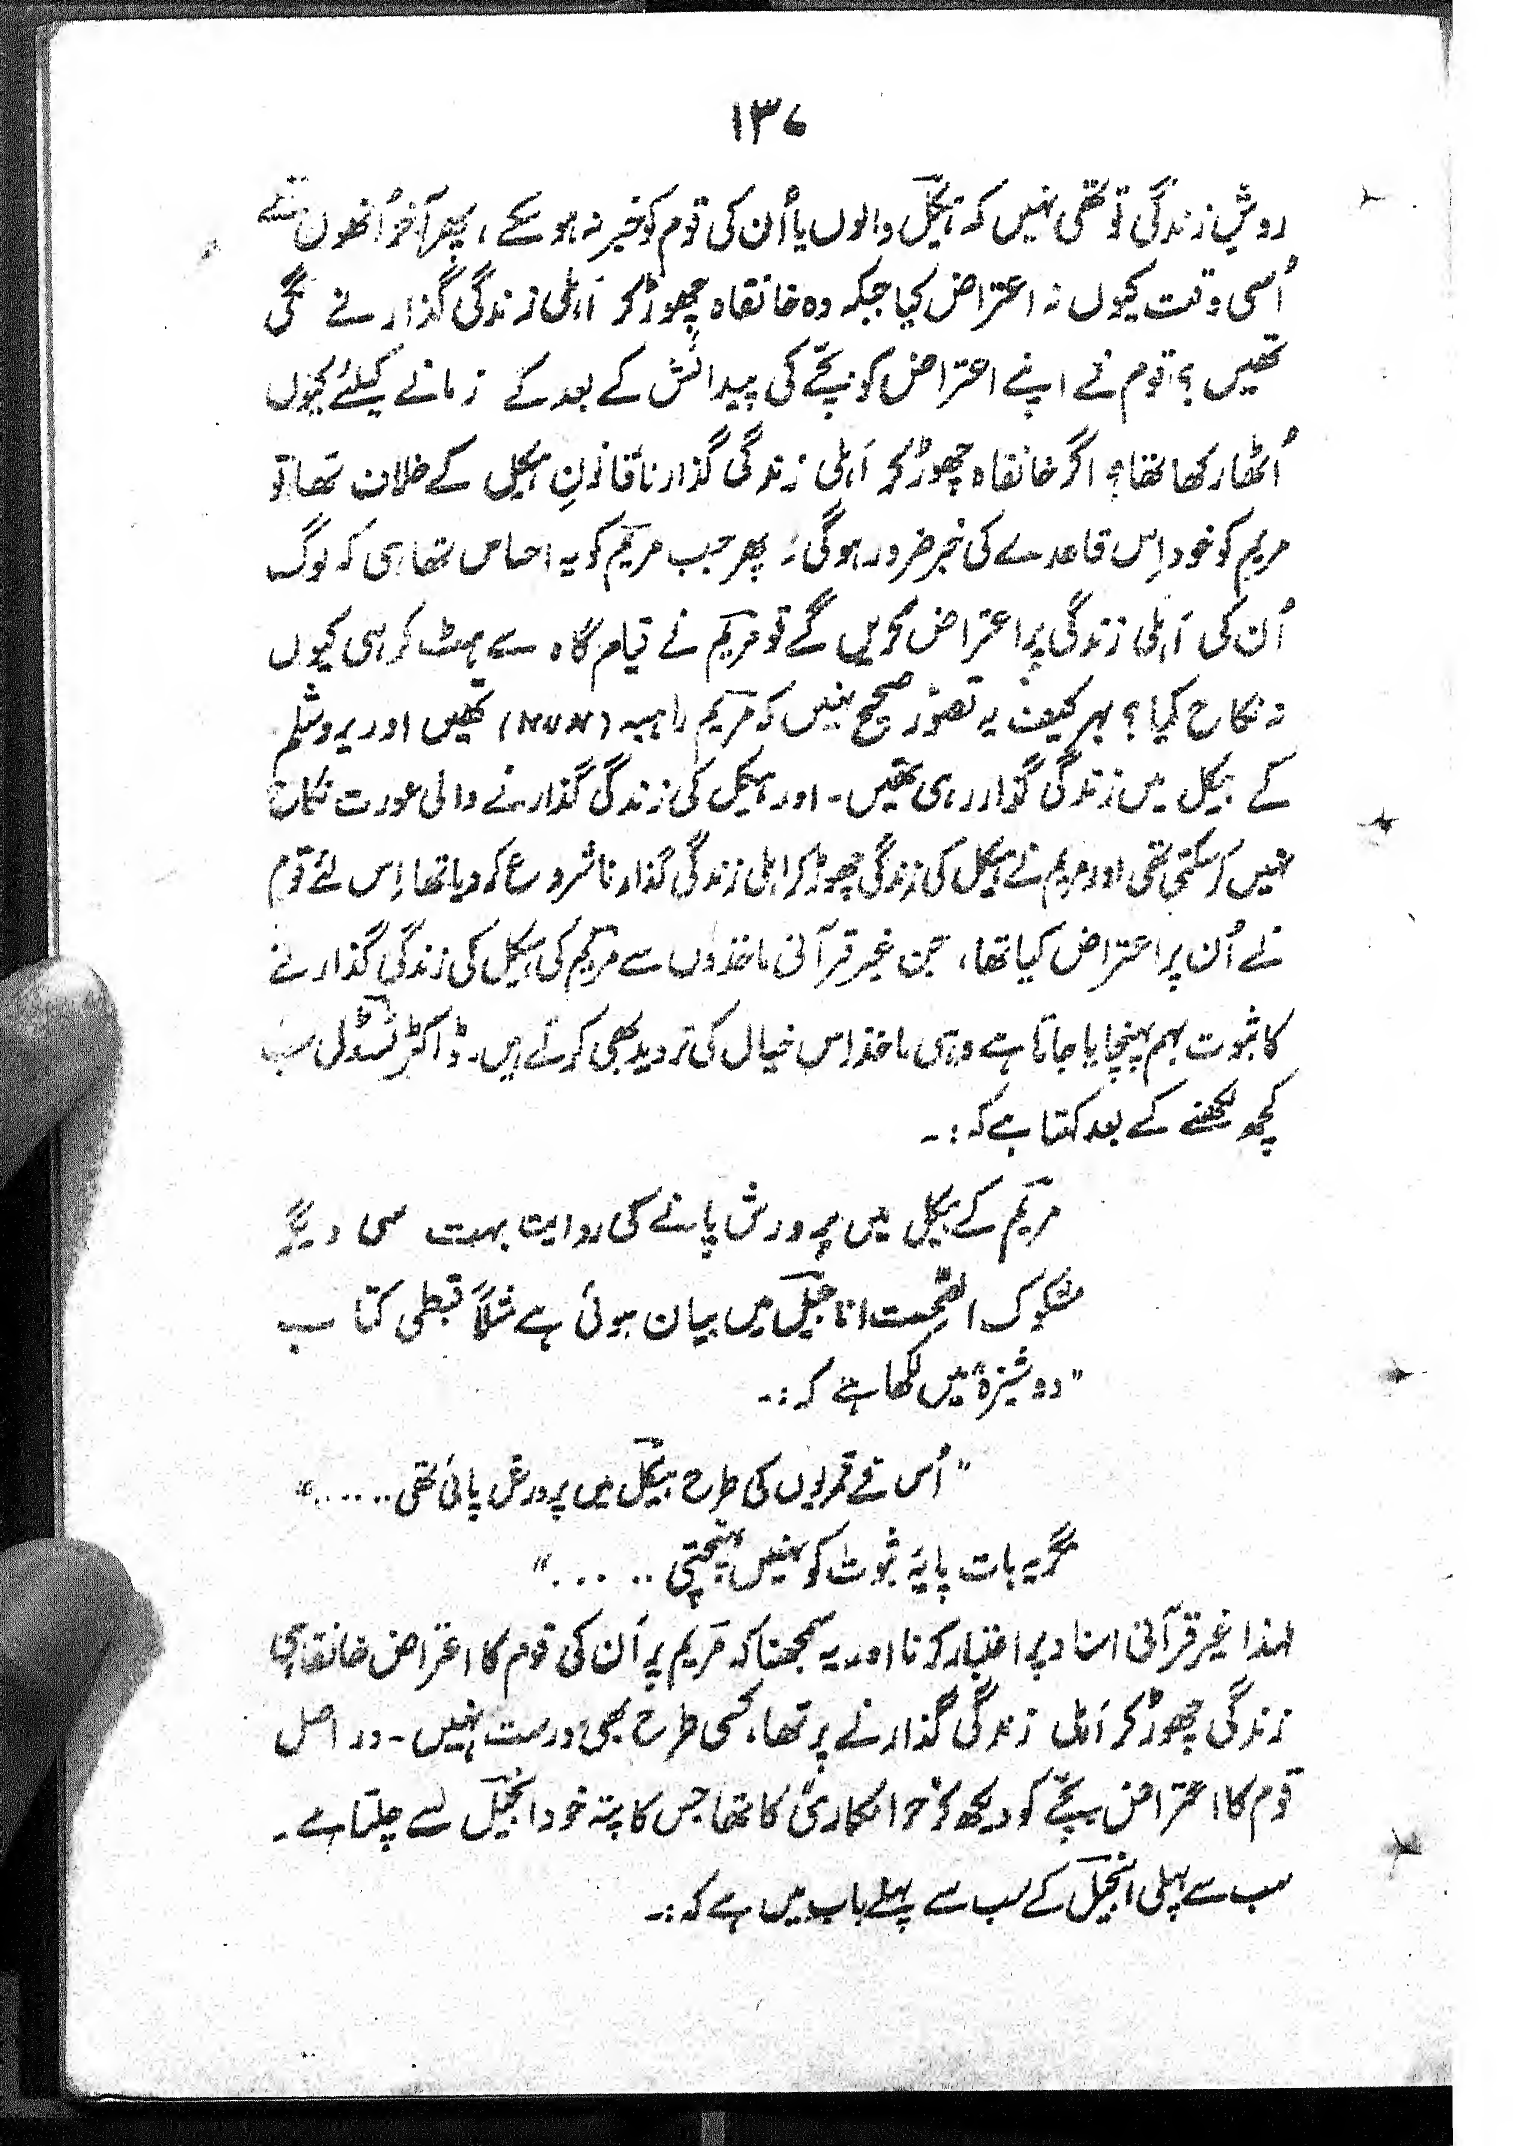 ۱۳۷
روشِ زندگی تو تھی نہیں کہ ہیکل والوں یا اُن کی قوم کو خبر نہ ہو سکے، پھر آخر اُنھوں نے
اُسی وقت کیوں نہ اعتراض کیا جبکہ وہ خانقاہ چھوڑ کر اَہلی زندگی گذارنے لگی
تھیں؟ قوم نے اپنے اعتراض کو بچّے کی پیدائش کے بعد کے زمانے کیلئے کیوں
اُٹھا رکھا تھا؟ اگر خانقاہ چھوڑ کر اَہلی زندگی گذارنا قانونِ ہیکل کے خلاف تھا تو
مریم کو خود اِس قاعدے کی خبر ضرور ہوگی؛ پھر جب مریم کو یہ احساس تھا ہی کہ لوگ
اُن کی اَہلی زندگی پر اعتراض کریں گے تو مریم نے قیام گاہ سے ہٹ کر ہی کیوں
نہ نکاح کیا؟ بہر کیف یہ تصوّر صحیح نہیں کہ مریم راہبہ (NUN) تھیں اور یروشلم
کے ہیکل میں زندگی گذار رہی تھیں۔ اور ہیکل کی زندگی گذارنے والی عورت نکاح
نہیں کرسکتی تھی اور مریم نے ہیکل کی زندگی چھوڑ کر اہلی زندگی گذارنا شروع کردیا تھا اِس لئے قوم
نے اُن پر اعتراض کیا تھا، جن غیر قرآنی ماخذوں سے مریم کی ہیکل کی زندگی گذارنے
کا ثبوت بہم پہنچایا جاتا ہے وہی ماخذ اس خیال کی تردید بھی کرتے ہیں۔ ڈاکٹر ٹسڈلی سب
کچھ لکھنے کے بعد کہتا ہے کہ:۔
مریم کے ہیکل میں پرورش پانے کی روایت بہت سی دیگر
مشکوک الصّحت اناجیل میں بیان ہوئی ہے مثلاً قبطی کتاب
"دوشیزہ" میں لکھا ہے کہ:۔
"اُس نے قمریوں کی طرح ہیکل میں پرورش پائی تھی....."
مگر یہ بات پایۂ ثبوت کو نہیں پہنچتی ....."
لہذا غیر قرآنی اسناد پر اعتبار کرنا اور یہ سمجھنا کہ مَریم پر اُن کی قوم کا اعتراض خانقاہی
زندگی چھوڑ کر اَہلی زندگی گذارنے پر تھا، کسی طرح بھی درست نہیں۔ در اصل
قوم کا اعتراض بچّے کو دیکھ کر "حرامکاری" کا تھا جس کا پتہ خود انجیل سے چلتا ہے۔
سب سے پہلی انجیل کے سب سے پہلے باب میں ہے کہ:۔